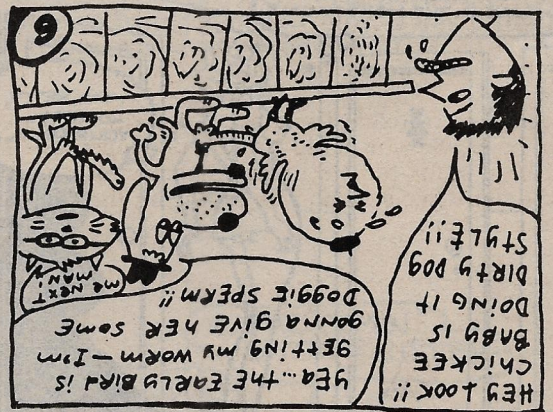 HEY LOOK!!
CHICKEE
BABY IS
DOING IT
DIRTY DOG
STYLE!!
YEA...THE EARLY BIRD IS
GETTING MY WORM — I'M
GONNA GIVE HER SOME
DOGGIE SPERM!!
ME NEXT
MAN!
9